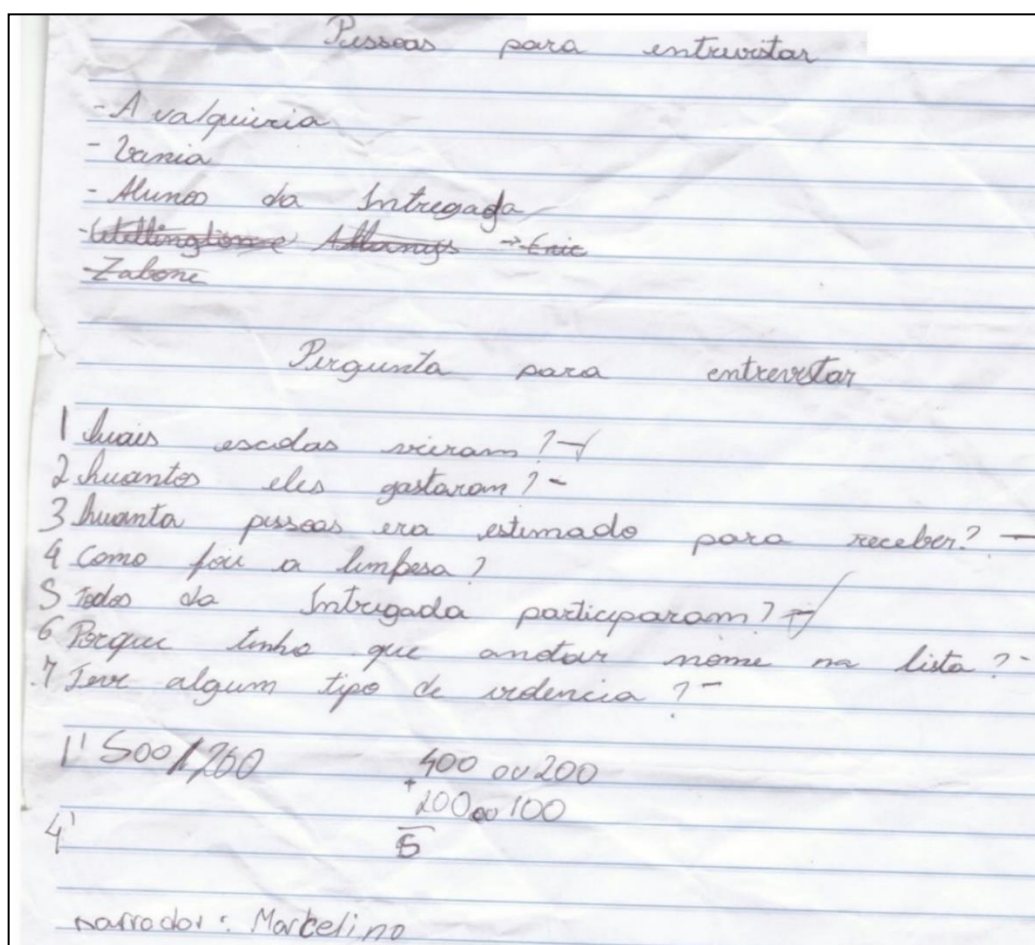 Pessoas para entrevistar
- A valquiria
- Vania
- Alunos da Intregada
- Wellington e Allanys → Eric
- Zabone
Pergunta para entrevistar
1 Quais escolas vieram? -
2 Quantos eles gastaram? -
3 Quanta pessoas era estimado para receber? -
4 Como foi a limpesa?
5 Todos da Intregada participaram? -
6 Porque tinha que anotar nome na lista? -
7 Teve algum tipo de violencia? -
1' 500/1,200 400 ou 200
+ 200 ou 100
4' 5
narrador: Marcelino